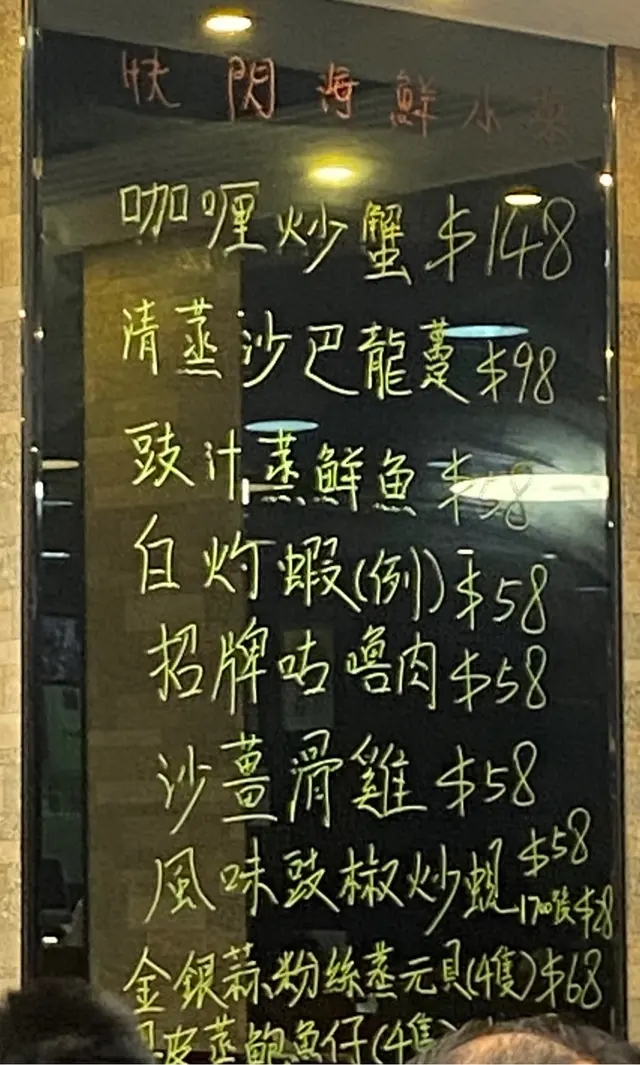 快閃海鮮小菜
咖喱炒蟹 $148
清蒸沙巴龍躉 $98
豉汁蒸鮮魚 $58
白灼蝦(例) $58
招牌咕嚕肉 $58
沙薑滑雞 $58
風味豉椒炒蜆 $58
金銀蒜粉絲蒸元貝(4隻) $68
皮蒸鮑魚仔(4隻)